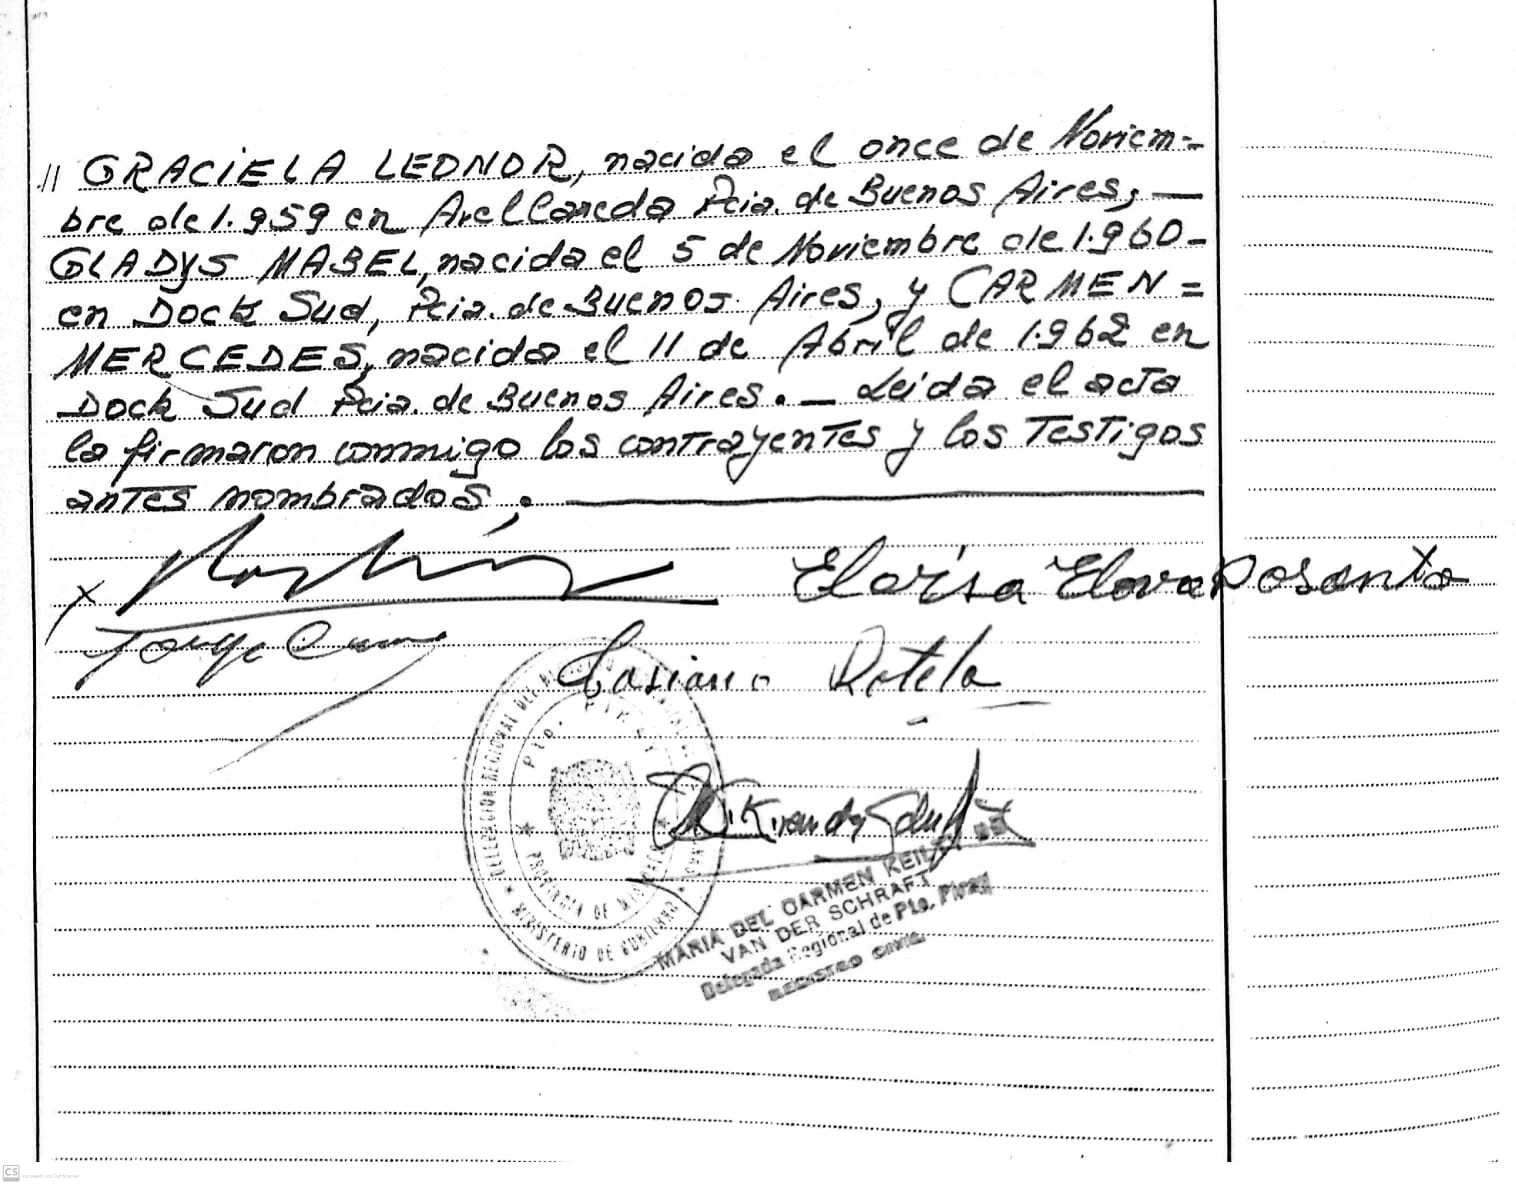 // GRACIELA LEONOR, nacida el once de Noviem-
bre de 1.959 en Avellaneda Pcia. de Buenos Aires, —
GLADYS MABEL, nacida el 5 de Noviembre de 1.960-
en Dock Sud, Pcia. de Buenos Aires, y CARMEN =
MERCEDES, nacida el 11 de Abril de 1.962 en
Dock Sud Pcia. de Buenos Aires. — Leida el acta
la firmaron conmigo los contrayentes y los Testigos
antes nombrados. —
X
Eloisa Elena X
Jorge
Casiano Rotela
DELEGACION REGIONAL DEL
Pto. PIRAY
PROVINCIA DE MISIONES
MINISTERIO DE GOBIERNO
MARIA DEL CARMEN KEILER DE
VAN DER SCHRAFT
Delegada Regional de Pto. Piray
REGISTRO CIVIL
CS
Escaneado con CamScanner